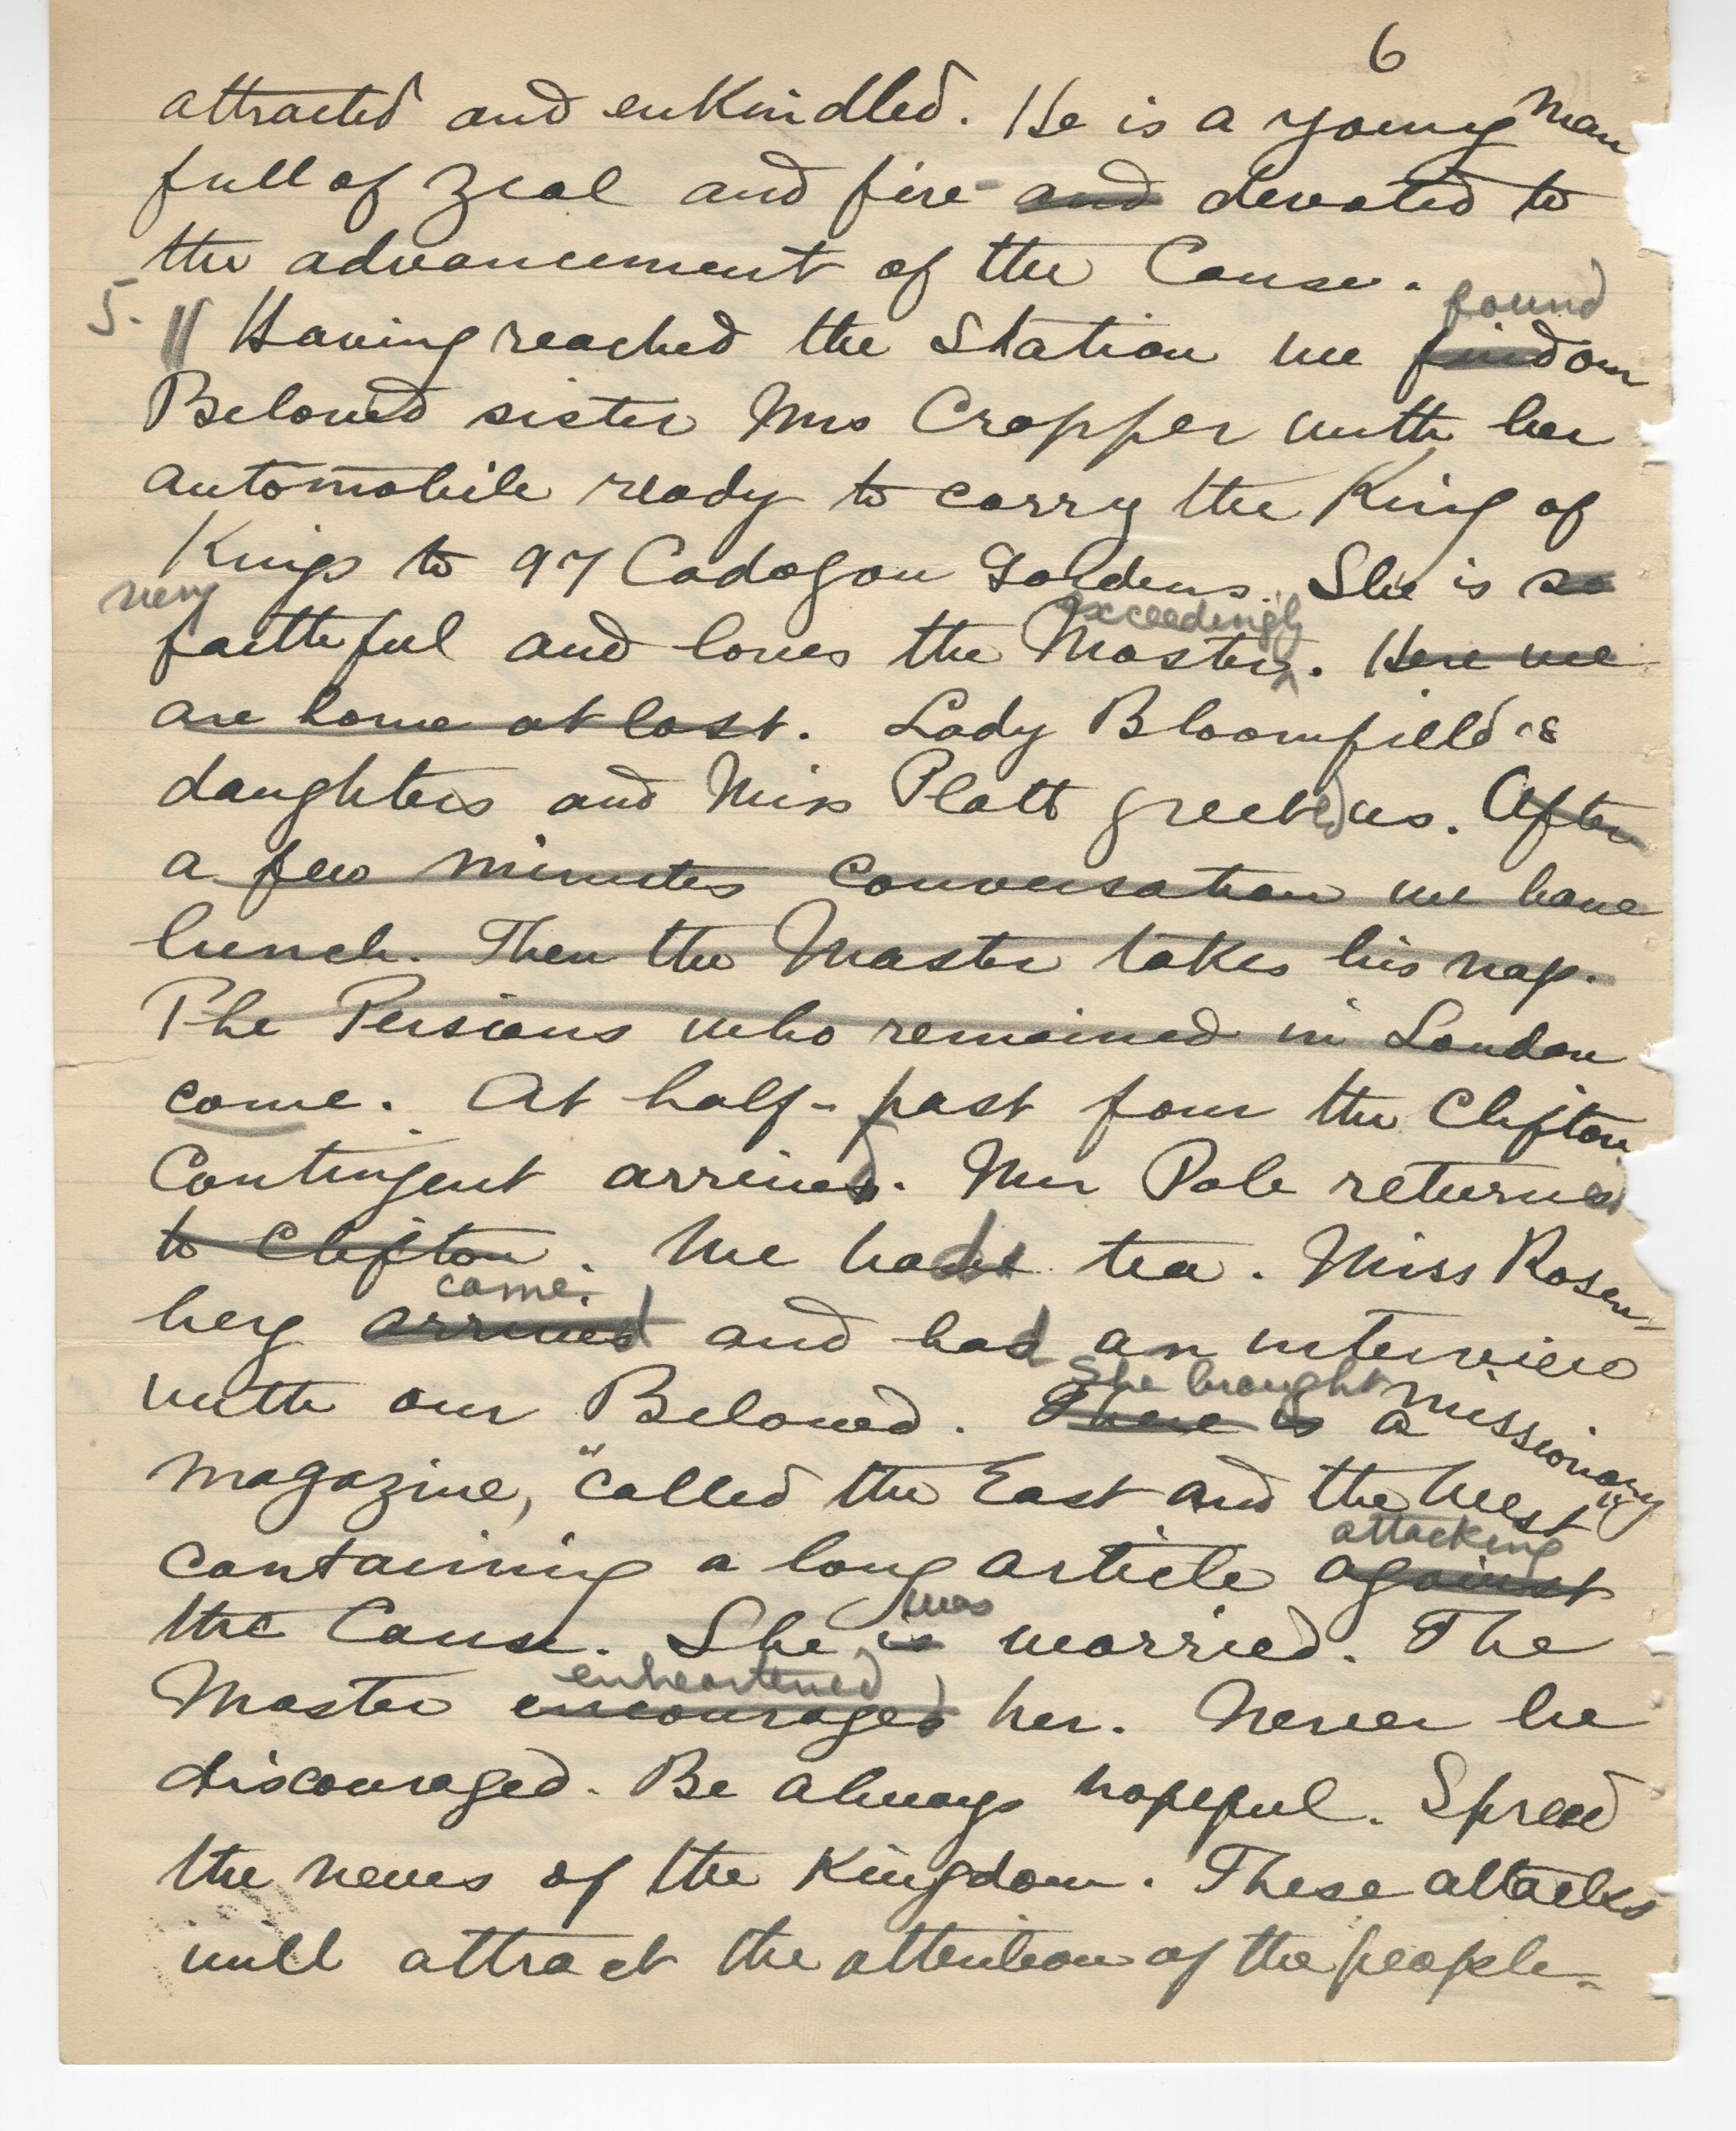 6
attracted and enkindled. He is a young man
full of zeal and fire and devoted to
the advancement of the Cause.
found
5. || Having reached the Station we find our
Beloved sister Mrs Cropper with her
automobile ready to carry the King of
Kings to 97 Cadogan Gardens. She is so
very
exceedingly
faithful and loves the Master. Here we
are home at last. Lady Bloomfield's
daughters and Miss Platt greeted us. After
a few minutes conversation we have
lunch. Then the Master takes his nap.
The Persians who remained in London
come. At half-past four the Clifton
Contingent arrived. Mr Pole returned
to Clifton. We had tea. Miss Rosen-
came.
berg arrived and had an interview
She brought
with our Beloved. There is a missionary
magazine, "called the East and the West"
attacking
containing a long article against
was
the Cause. She is worried. The
enheartened
Master encouraged her. Never be
discouraged. Be always hopeful. Spread
the news of the Kingdom. These attacks
will attract the attention of the people-